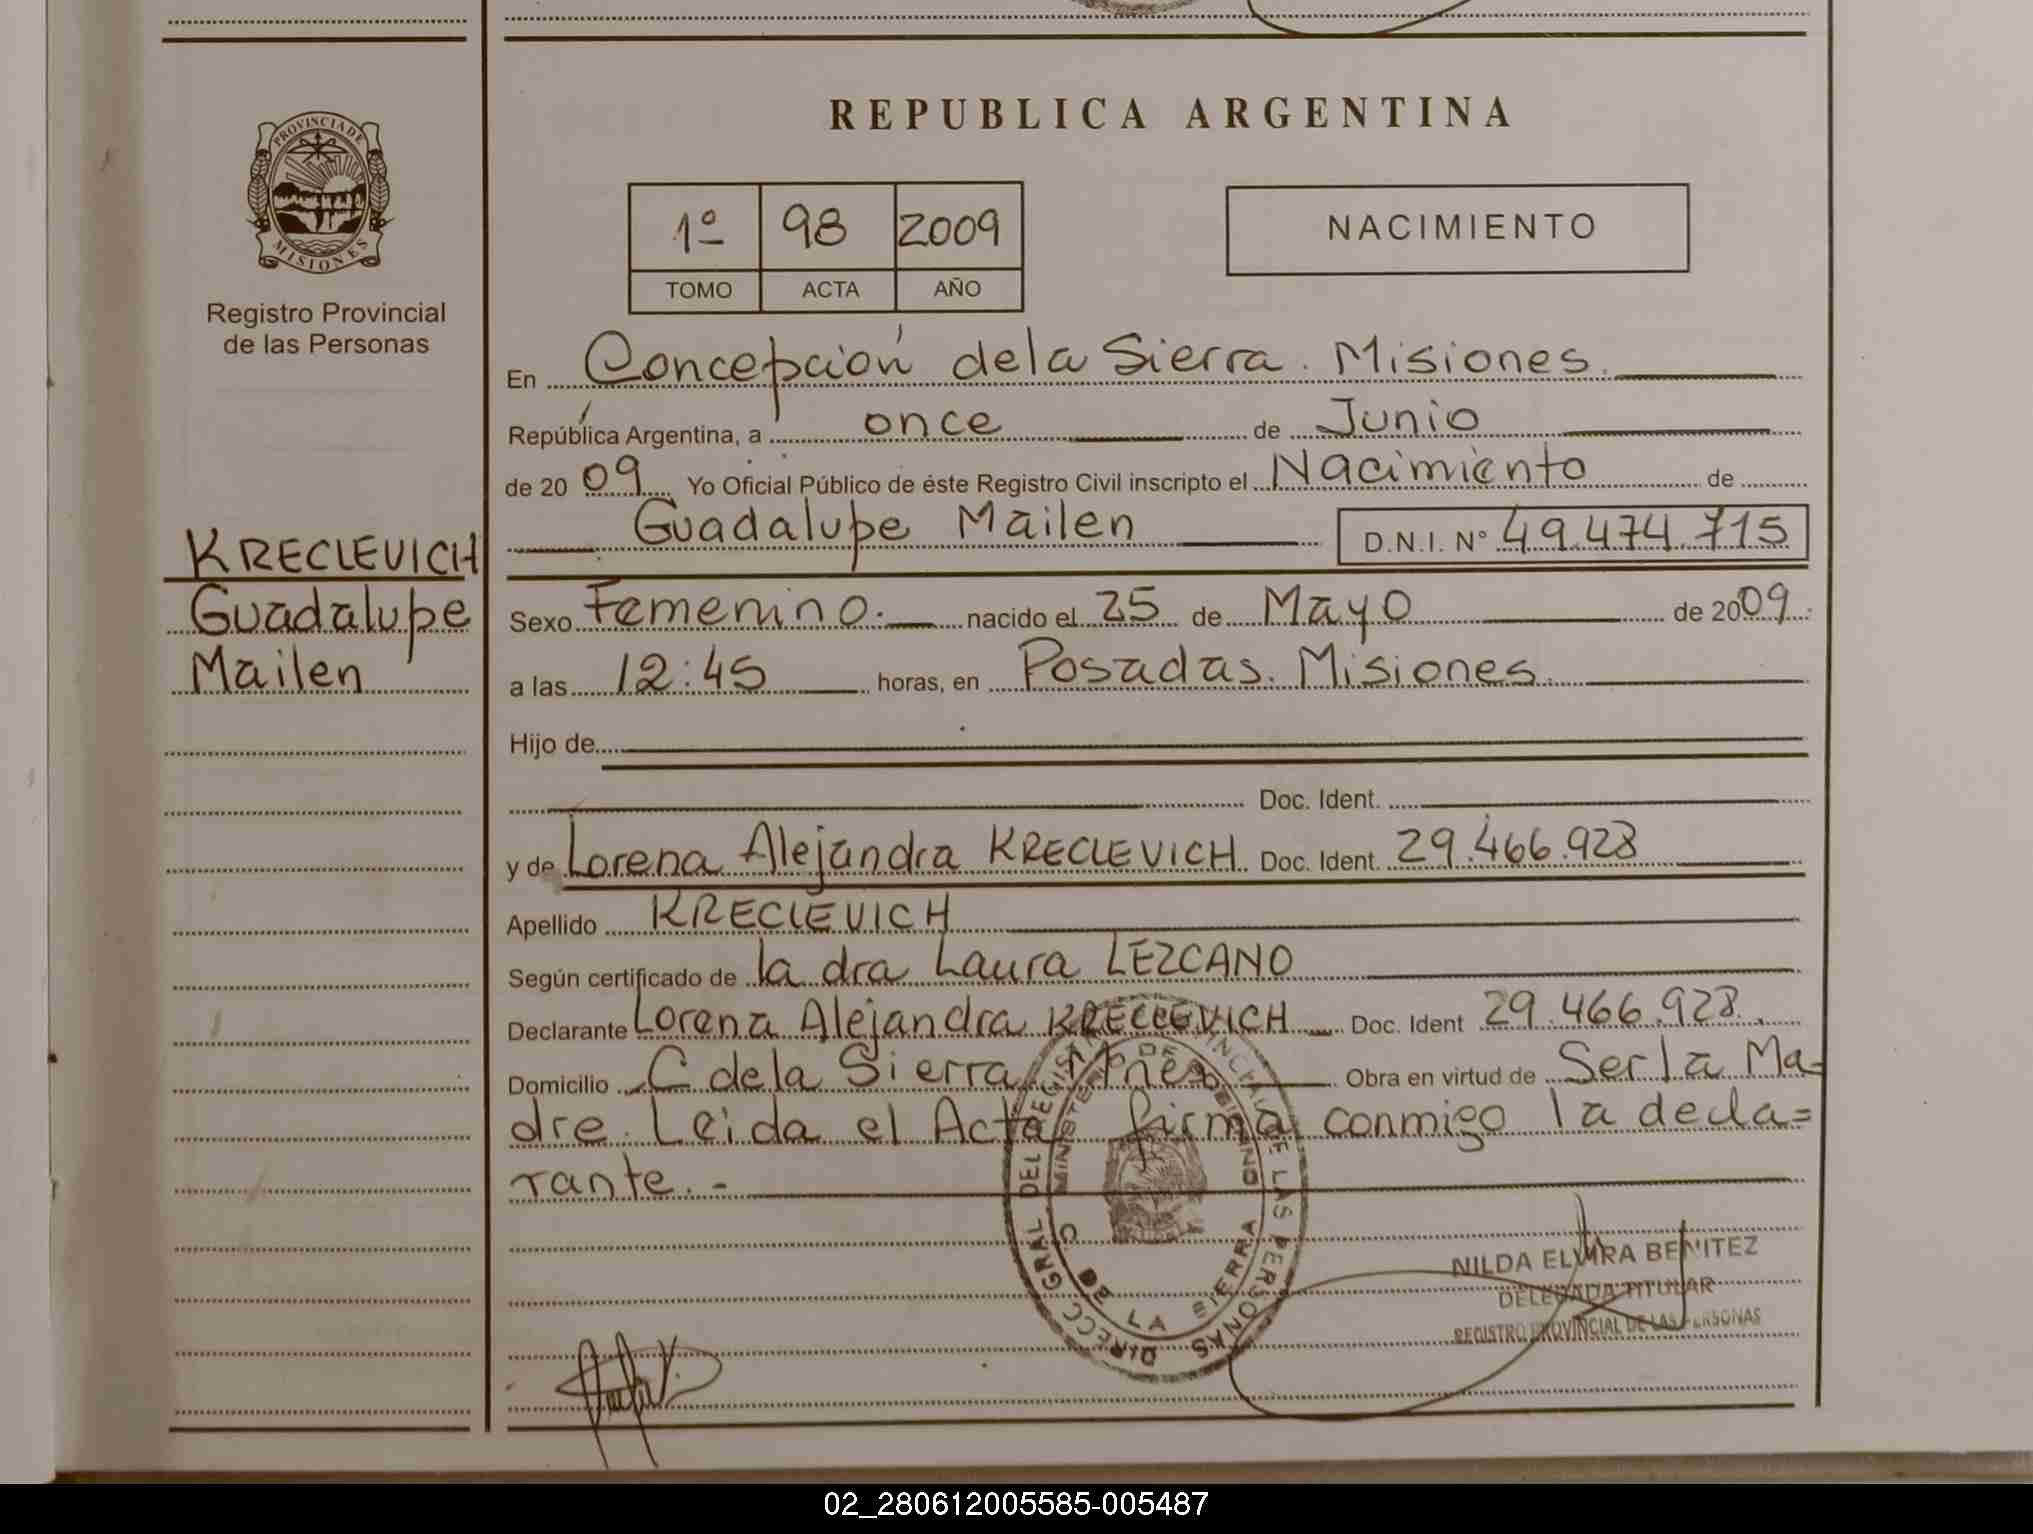 REPUBLICA ARGENTINA
PROVINCIA DE
MISIONES
Registro Provincial
de las Personas
1º 98 2009
TOMO ACTA AÑO
NACIMIENTO
En Concepción de la Sierra. Misiones.
República Argentina, a once de Junio
de 2009 Yo Oficial Público de éste Registro Civil inscripto el Nacimiento de
Guadalupe Mailen D.N.I. Nº 49.474.715
KRECLEVICH
Guadalupe
Mailen
Sexo Femenino. nacido el 25 de Mayo de 2009.
a las 12:45 horas, en Posadas. Misiones.
Hijo de
Doc. Ident.
y de Lorena Alejandra KRECLEVICH. Doc. Ident. 29.466.928
Apellido KRECLEVICH
Según certificado de la dra Laura LEZCANO
Declarante Lorena Alejandra KRECLEVICH Doc. Ident 29.466.928.
Domicilio C de la Sierra Mnes Obra en virtud de Ser la Ma=
dre. Leida el Acta firma conmigo la decla=
rante. -
DIRECC GRAL DEL REGISTRO PROVINCIAL DE LAS PERSONAS
MINISTERIO DE GOBIERNO
C DE LA SIERRA
NILDA ELVIRA BENITEZ
DELEGADA TITULAR
REGISTRO PROVINCIAL DE LAS PERSONAS
02_280612005585-005487